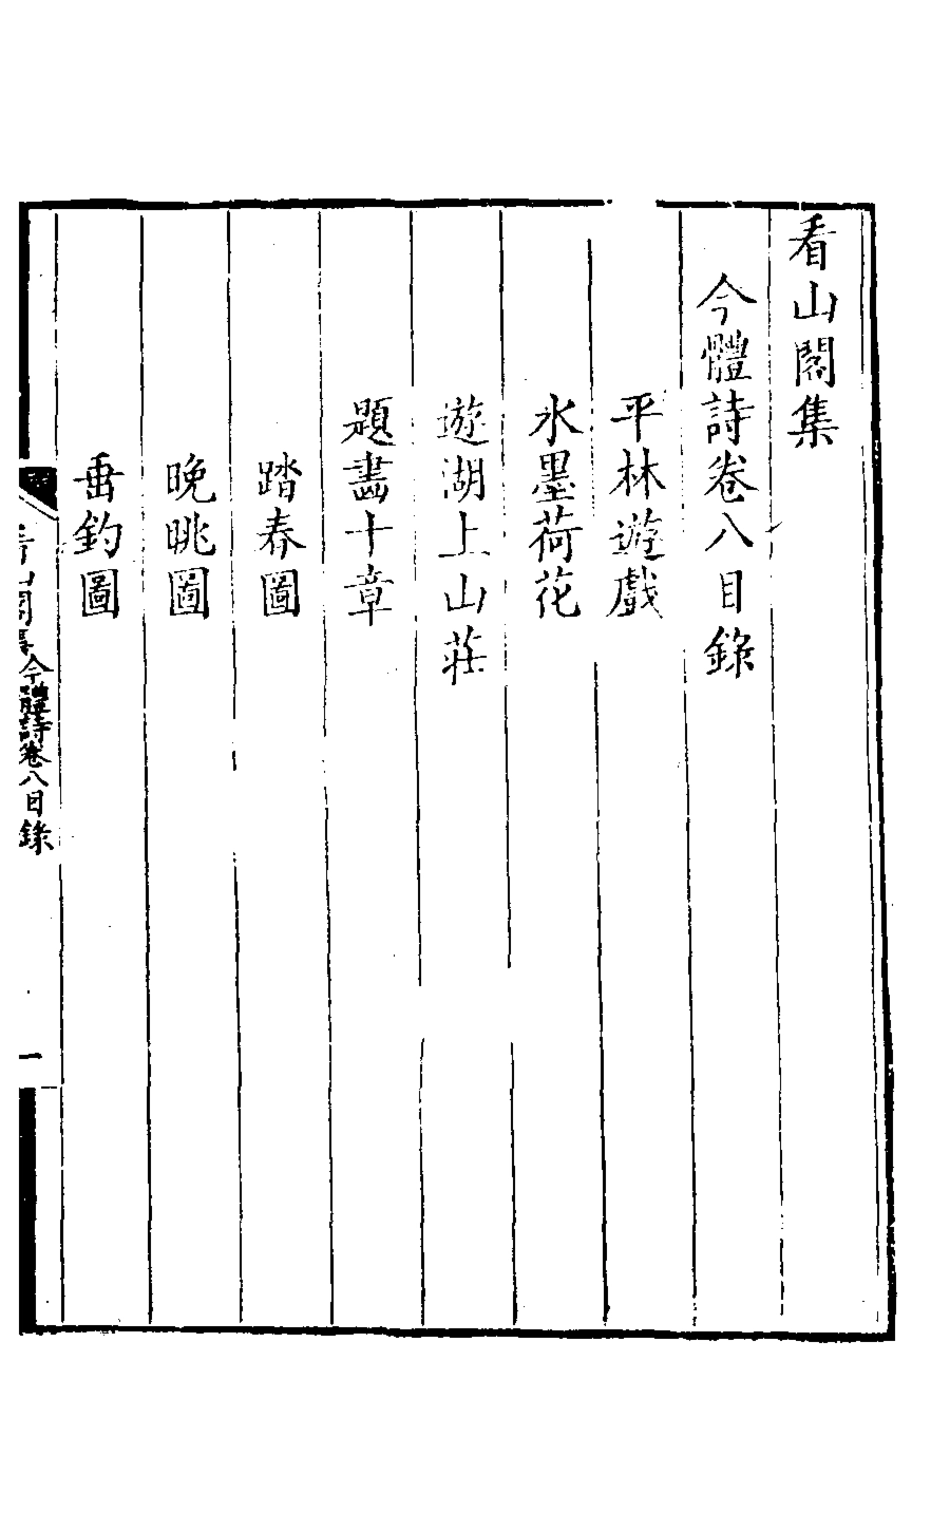 看山閣集
今體詩卷八目錄
平林遊戲
水墨荷花
遊湖上山莊
題畵十章
踏春圖
晚眺圖
垂釣圖
看山閣集今體詩卷八目錄
一